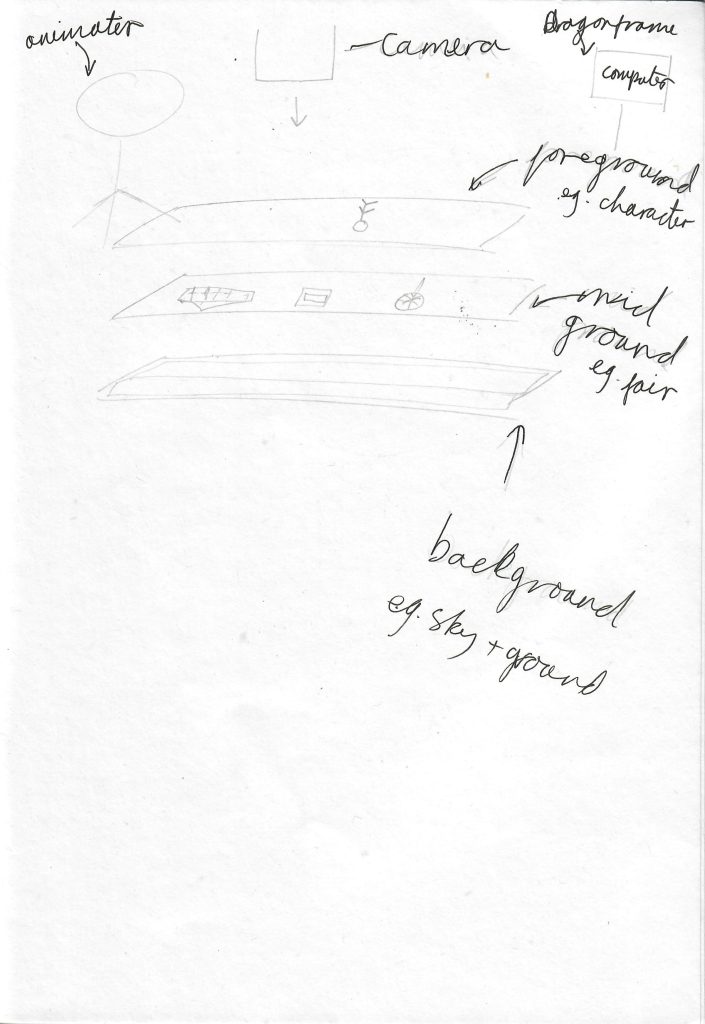 animator
camera
Dragonframe
computer
foreground
eg. character
mid
ground
eg. fair
background
eg. sky + ground